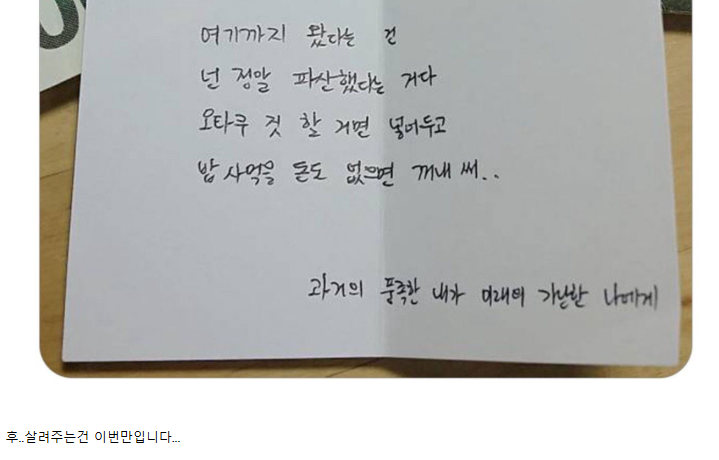 여기까지 왔다는 건
넌 정말 파산했다는 거다
오타쿠 짓 할 거면 넣어두고
밥 사먹을 돈도 없으면 꺼내 써..
과거의 풍족한 내가 미래의 가난한 나에게
후..살려주는건 이번만입니다...